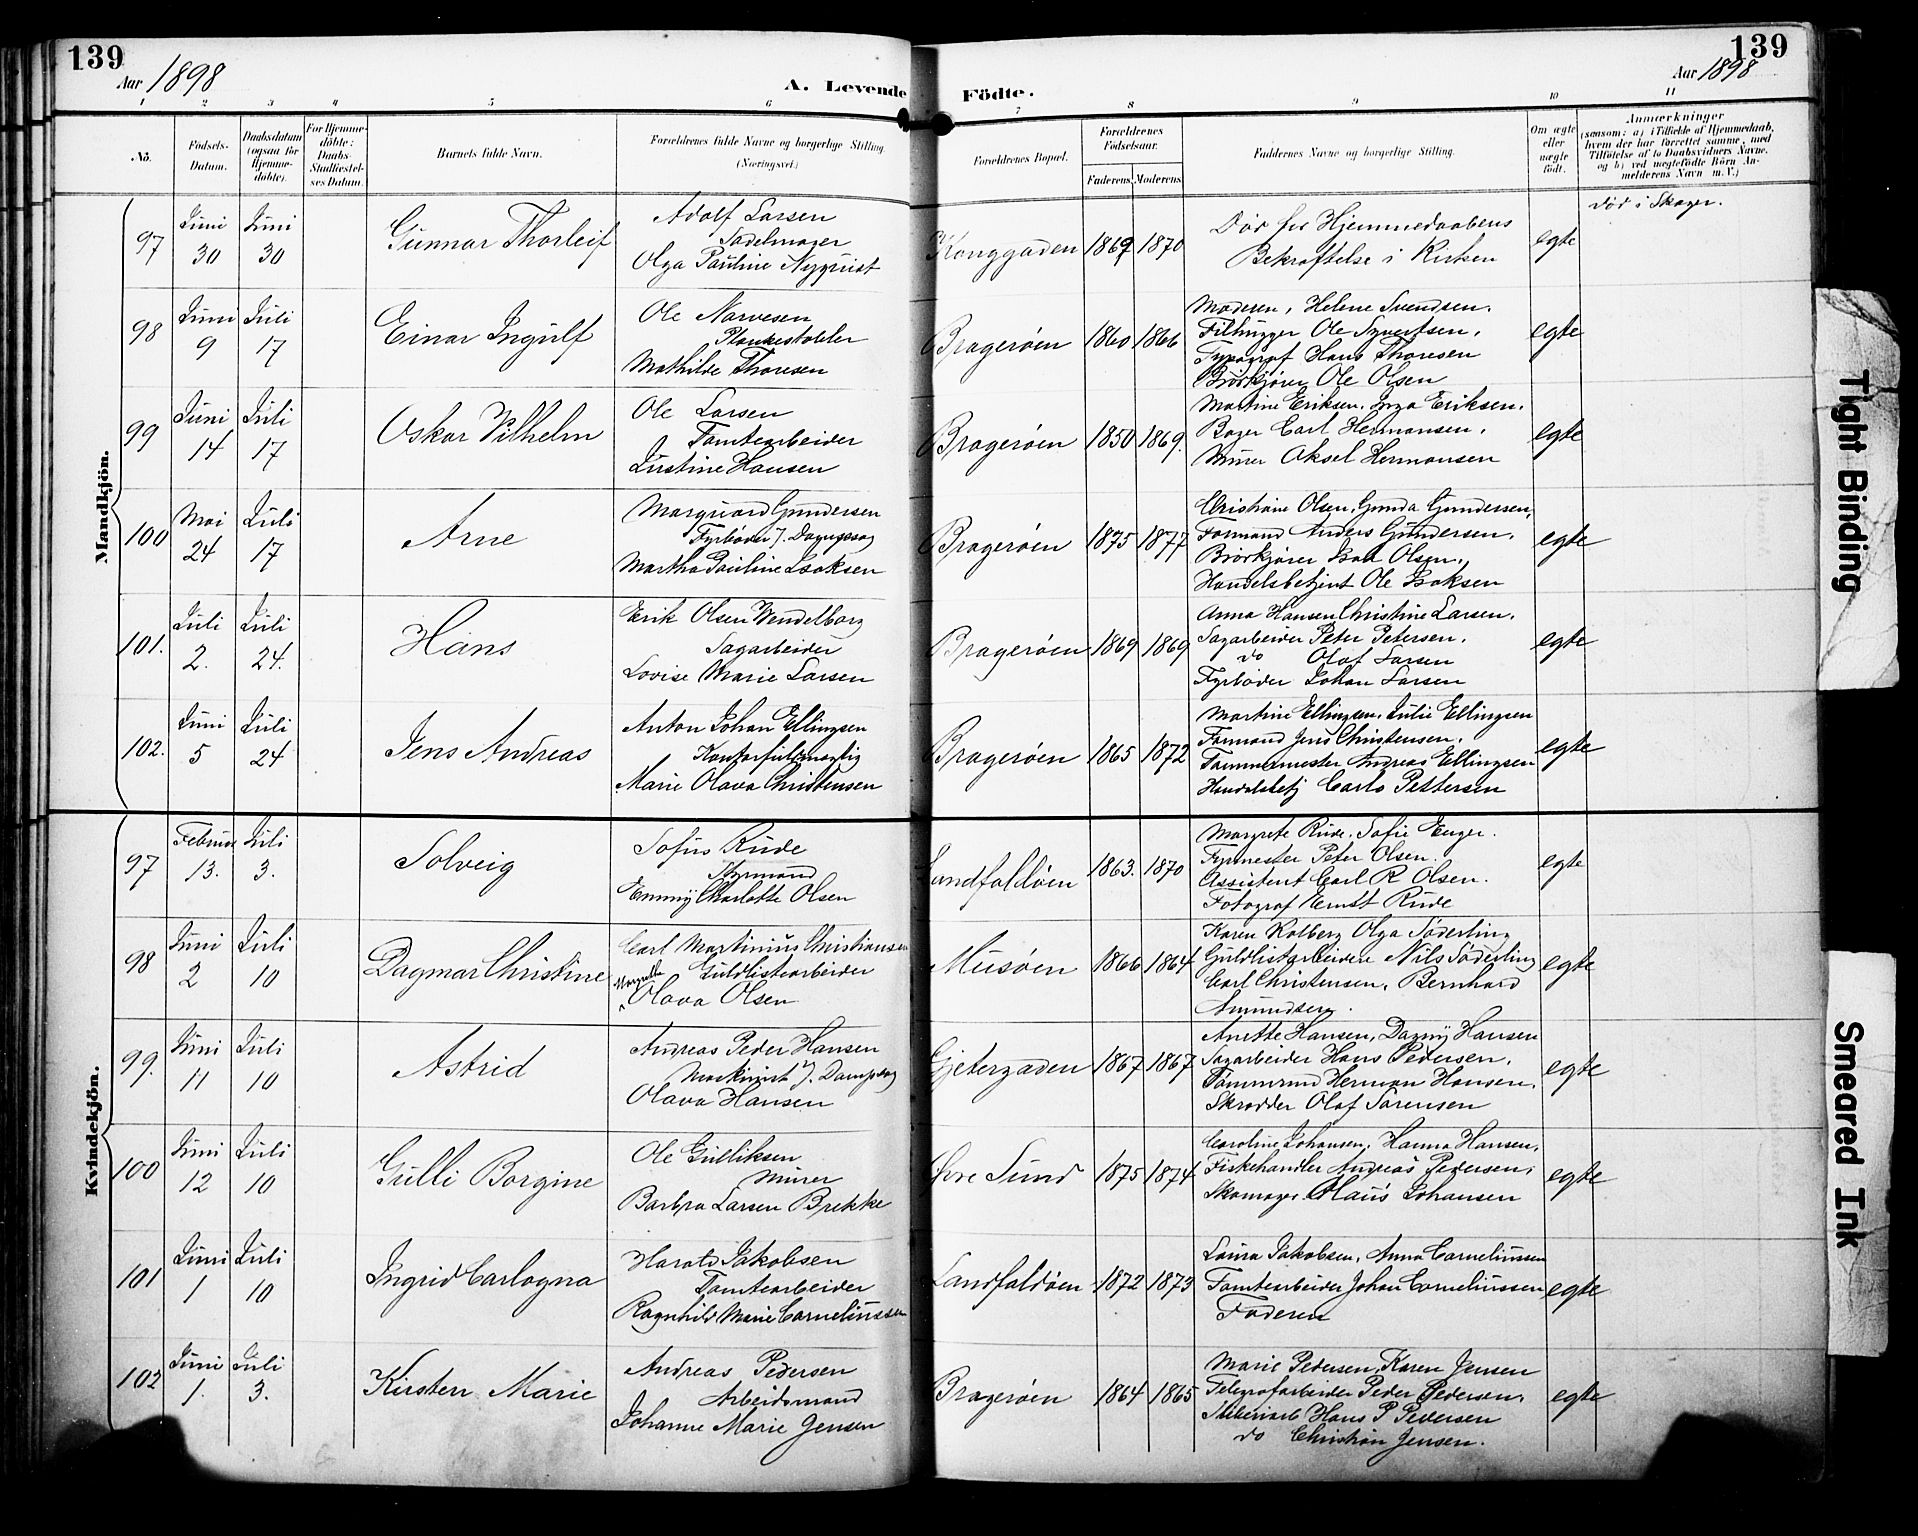 139
Aar 1898
A. Levende
Födte.
139
Aar 1898
1 2 3 4 5 6 7 8 9 10 11
No.
Födsels-Datum.
Daabsdatum (ogsaa for Hjemmedöbte).
For Hjemmedöbte: Daabs-Stadfæstelses Datum.
Barnets fulde Navn.
Forældrenes fulde Navne og borgerlige Stilling (Næringsvei.)
Forældrenes Bopæl.
Forældrenes Födselsaar.
Faderens. Moderens.
Faddernes Navne og borgerlige Stilling.
Om ægte eller uægte födt.
Anmærkninger
(saasom: a) i Tilfælde af Hjemmedaab, hvem der har forrettet samme, med Tilföielse af to Daabsvidners Navne, og b) ved uægtefödte Börn Anmelderens Navn m. V.)
Mandkjön.
97 Juni 30 Juni 30 Gunnar Thorleif
Adolf Larsen
Sadelmager
Olga Pauline Nyquist
Konggaden 1869 1870
Död før Hjemmedaabens
Bekræftelse i Kirken
egte
Död i Skoger.
98 Juni 9 Juli 17 Einar Ingulf
Ole Narvesen
Plankestabler
Mathilde Thoresen
Bragerøen 1860 1866
Moderen, Helene Svendsen.
Filhugger Ole Syvertsen,
Typograf Hans Thoresen
Brørkjører Ole Olsen
egte
99 Juni 14 Juli 17 Oskar Vilhelm
Ole Larsen
Tomtearbeider
Justine Hansen
Bragerøen 1850 1869.
Martine Eriksen, Inga Eriksen.
Bager Carl Hermansen,
Murer Aksel Hermansen
egte
100 Mai 24 Juli 17 Arne
Marguard Gundersen
Fyrbøder J. Dampsag
Martha Pauline Isaksen
Bragerøen 1875 1877
Christiane Olsen, Gunda Gundersen,
Formand Anders Gundersen,
Brørkjører Isak Olsen,
Handelsbetjent Ole Isaksen
egte
101. Juli 2. Juli 24. Hans
Erik Olsen Wendelborg
Sagarbeider
Lovise Marie Larsen
Bragerøen 1869 1869
Anna Hansen Christine Larsen,
Sagarbeider Peter Petersen,
do Olaf Larsen
Fyrbøder Johan Larsen
egte
102. Juni 5 Juli 24 Jens Andreas
Anton Johan Ellingsen
Kontorfuldmægtig
Marie Olava Christensen
Bragerøen 1865 1872
Martine Ellingsen, Julie Ellingsen
Formand Jens Christensen,
Tømmermester Andreas Ellingsen
Handelsbetj Carlo Pettersen
egte
Kvindekjön.
97 Februar 13. Juli 3. Solveig
Sofus Rude
Styrmand
Emmy Charlotte Olsen
Landfaldøen 1863. 1870
Margrete Rude, Sofie Enger.
Fyrmester Peter Olsen.
Assistent Carl R Olsen.
Fotograf Ernst Rude
egte
98 Juni 2 Juli 10 Dagmar Christine
Carl Martinius Christiansen
Guldlistearbeider
Margrethe Olava Olsen
Musøen 1866 1864
Karen Kolberg Olga Söderling
Guldlistarbeidere Nils Söderling
Carl Christensen, Bernhard
Amundsen.
egte
99. Juni 11 Juli 10 Astrid
Andreas Peder Hansen
Maskinist J. Dampsag
Olava Hansen
Gjetergaden 1867 1867
Anette Hansen, Dagny Hansen
Sagarbeider Hans Pedersen,
Tømmermd Herman Hansen,
Skrædder Olaf Sørensen
egte
100 Juni 12 Juli 10 Gulli Borgine
Ole Gulliksen
Murer
Barbra Larsen Brekke
Øvre Sund 1875 1874
Caroline Johansen, Hanna Hansen,
Fiskehandler Andreas Pedersen,
Skomager Olaus Johansen
egte
101 Juni 1 Juli 10 Ingrid Carlogna
Harald Jakobsen
Tomtearbeider
Ragnhild Marie Corneliussen
Landfaldøen 1872 1873
Laura Jakobsen, Anna Corneliussen
Tomtearbeider Johan Corneliussen
Faderen
egte
102 Juni 1. Juli 3. Kirsten Marie
Andreas Pedersen
Arbeidsmand
Johanne Marie Jensen
Bragerøen 1864 1865
Marie Pedersen, Karen Jensen
Telegrafarbeider Peder Pedersen,
Hans P Pedersen
do Christian Jensen.
egte
Tight Binding
Smeared Ink